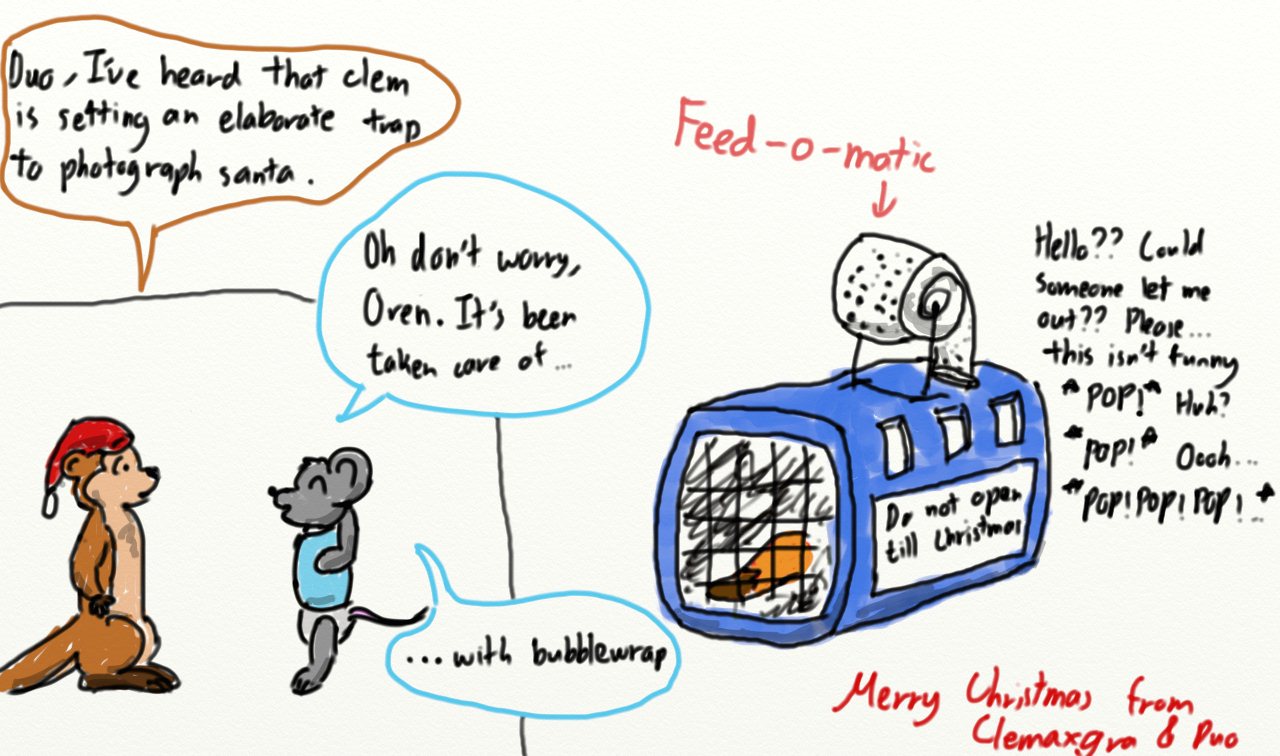 Duo, I've heard that clem
is setting an elaborate trap
to photograph santa.
Oh don't worry,
Oren. It's been
taken care of...
...with bubblewrap
Feed-o-matic
Do not open
till Christmas
Hello?? Could
someone let me
out?? Please...
this isn't funny
*POP!* Huh?
*POP!* Oooh...
*POP! POP! POP!...*
Merry Christmas from
Clemaxgra & Duo